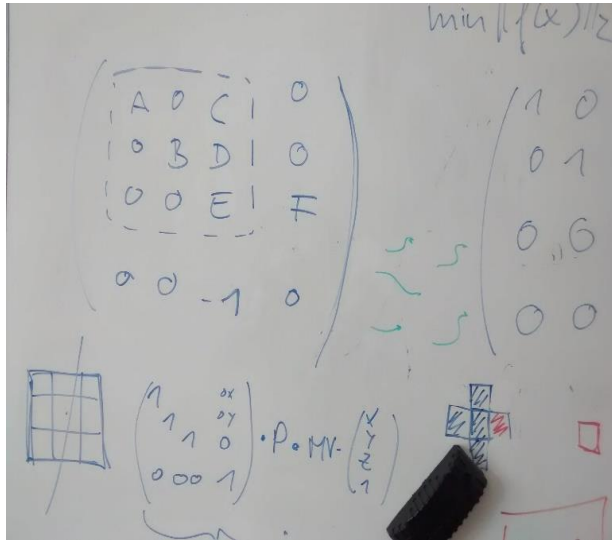 min ||f(x)||2
A 0 C 0
0 B D 0
0 0 E F
0 0 -1 0
1 0
0 1
0 0
0 0
1 0X
1 0Y
1 0
0 0 0 1
· P · MV ·
X
Y
Z
1